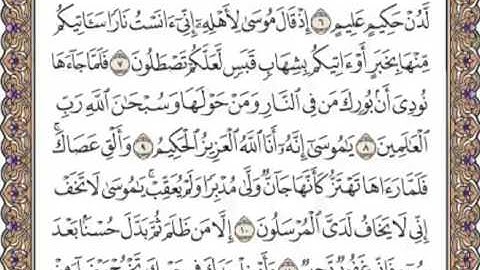 لَّدُنْ حَكِيمٍ عَلِيمٍ ٦ إِذْ قَالَ مُوسَىٰ لِأَهْلِهِۦٓ إِنِّىٓ ءَانَسْتُ نَارًا سَـَٔاتِيكُم
مِّنْهَا بِخَبَرٍ أَوْ ءَاتِيكُم بِشِهَابٍ قَبَسٍ لَّعَلَّكُمْ تَصْطَلُونَ ٧ فَلَمَّا جَآءَهَا
نُودِىَ أَنۢ بُورِكَ مَن فِى ٱلنَّارِ وَمَنْ حَوْلَهَا وَسُبْحَـٰنَ ٱللَّهِ رَبِّ
ٱلْعَـٰلَمِينَ ٨ يَـٰمُوسَىٰٓ إِنَّهُۥٓ أَنَا ٱللَّهُ ٱلْعَزِيزُ ٱلْحَكِيمُ ٩ وَأَلْقِ عَصَاكَ ۚ
فَلَمَّا رَءَاهَا تَهْتَزُّ كَأَنَّهَا جَآنٌّ وَلَّىٰ مُدْبِرًا وَلَمْ يُعَقِّبْ ۚ يَـٰمُوسَىٰ لَا تَخَفْ
إِنِّى لَا يَخَافُ لَدَىَّ ٱلْمُرْسَلُونَ ١٠ إِلَّا مَن ظَلَمَ ثُمَّ بَدَّلَ حُسْنًۢا بَعْدَ